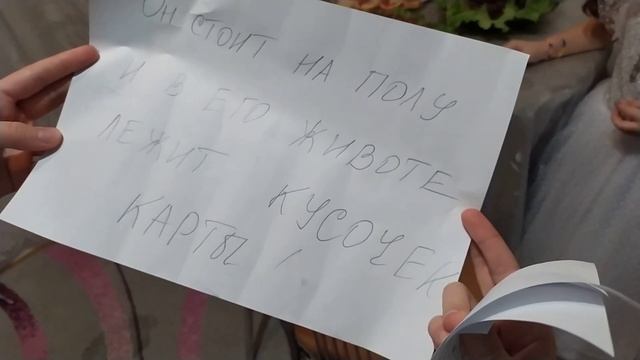 Он стоит на полу
и в его животе
лежит кусочек
карты!